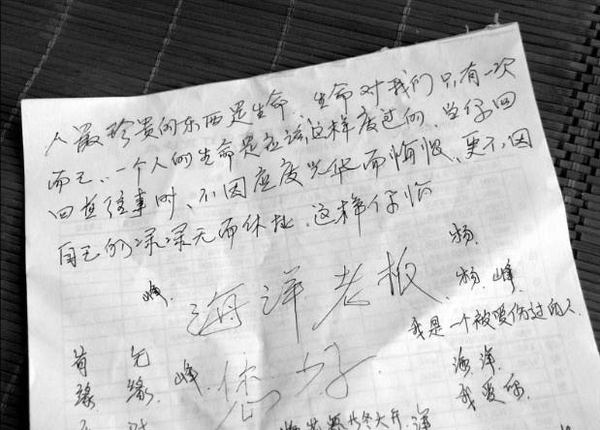 人最珍贵的东西是生命、生命对我们只有一次
而已、一个人的生命是应该这样度过的、当你回
回首往事时、不因虚度光华而悔恨、更不因
自己的碌碌无而休耻、这样你临
杨
峰 海洋老板 杨峰
我是一个被爱伤过的人
首 无 峰 您好 海洋
缘 缘 我爱你
洋